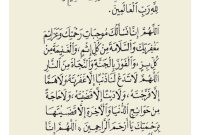 لِلّٰهِ رَبِّ الْعَالَمِيْنَ.
اَللّٰهُمَّ إِنَّا نَسْأَلُكَ مُوْجِبَاتِ رَحْمَتِكَ وَعَزَائِمَ
مَغْفِرَتِكَ وَالسَّلَامَةَ مِنْ كُلِّ إِثْمٍ وَالْغَنِيْمَةَ مِنْ
كُلِّ بِرٍّ وَالْفَوْزَ بِالْجَنَّةِ وَالنَّجَاةَ مِنَ النَّارِ
اَللّٰهُمَّ لَا تَدَعْ لَنَا ذَنْبًا إِلَّا غَفَرْتَهُ وَلَا هَمًّا
إِلَّا فَرَّجْتَهُ وَلَا دَيْنًا إِلَّا قَضَيْتَهُ وَلَا حَاجَةً
مِنْ حَوَائِجِ الدُّنْيَا وَالْآخِرَةِ إِلَّا قَضَيْتَهَا
بِرَحْمَتِكَ يَا أَرْحَمَ الرَّاحِمِيْنَ اَللّٰهُمَّ إِنَّا